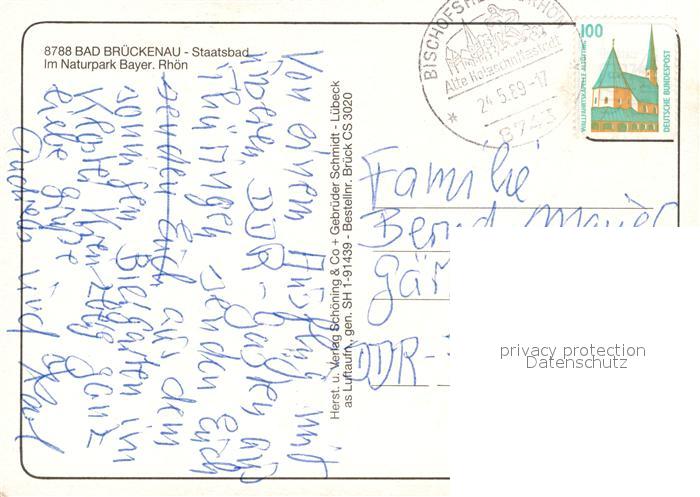 8788 BAD BRÜCKENAU - Staatsbad
Im Naturpark Bayer. Rhön
Von einem Ausflug mit
unseren DDR-Gästen aus
Thüringen senden Euch
senden Euch aus dem
sonnigen Biergarten im
Kloster Kreuzberg ganz
liebe Grüße
und Karl
Herst. u. Verlag Schöning & Co + Gebrüder Schmidt - Lübeck
as Luftaufn. gen. SH 1-91439 - Bestellnr. Brück CS 3020
BISCHOFSHEIM RHÖN
Alte Holzschnitzstadt
24.5.89-17
8743
100
WALLFAHRTSKAPELLE ALTÖTTING
DEUTSCHE BUNDESPOST
Familie
Bernd
DDR-
privacy protection
Datenschutz